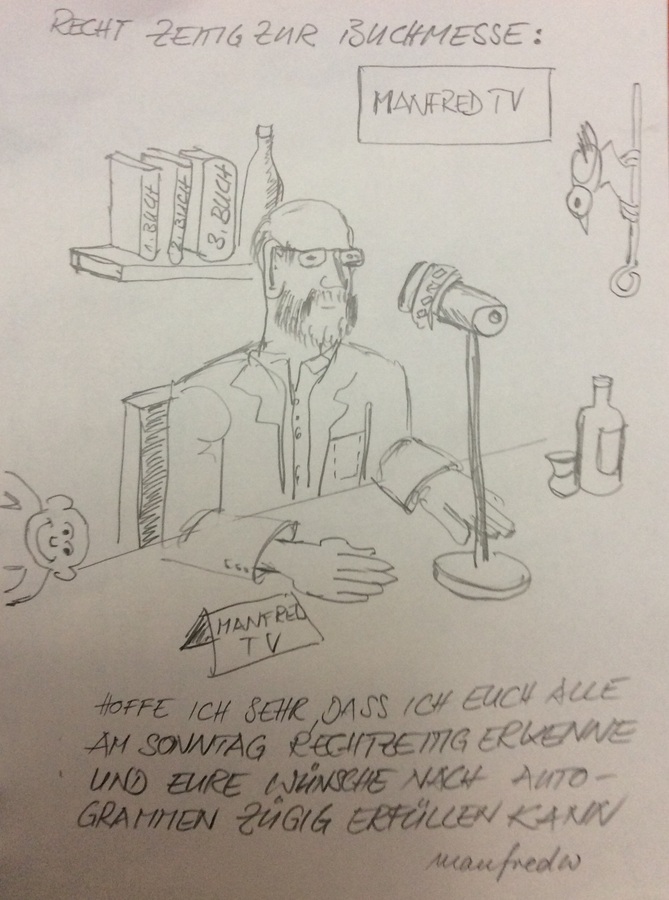 RECHT ZEITIG ZUR BUCHMESSE:
MANFRED TV
1. BUCH
2. BUCH
3. BUCH
MANFRED
TV
HOFFE ICH SEHR, DASS ICH EUCH ALLE
AM SONNTAG RECHTZEITIG ERKENNE
UND EURE WÜNSCHE NACH AUTO-
GRAMMEN ZÜGIG ERFÜLLEN KANN
manfredw